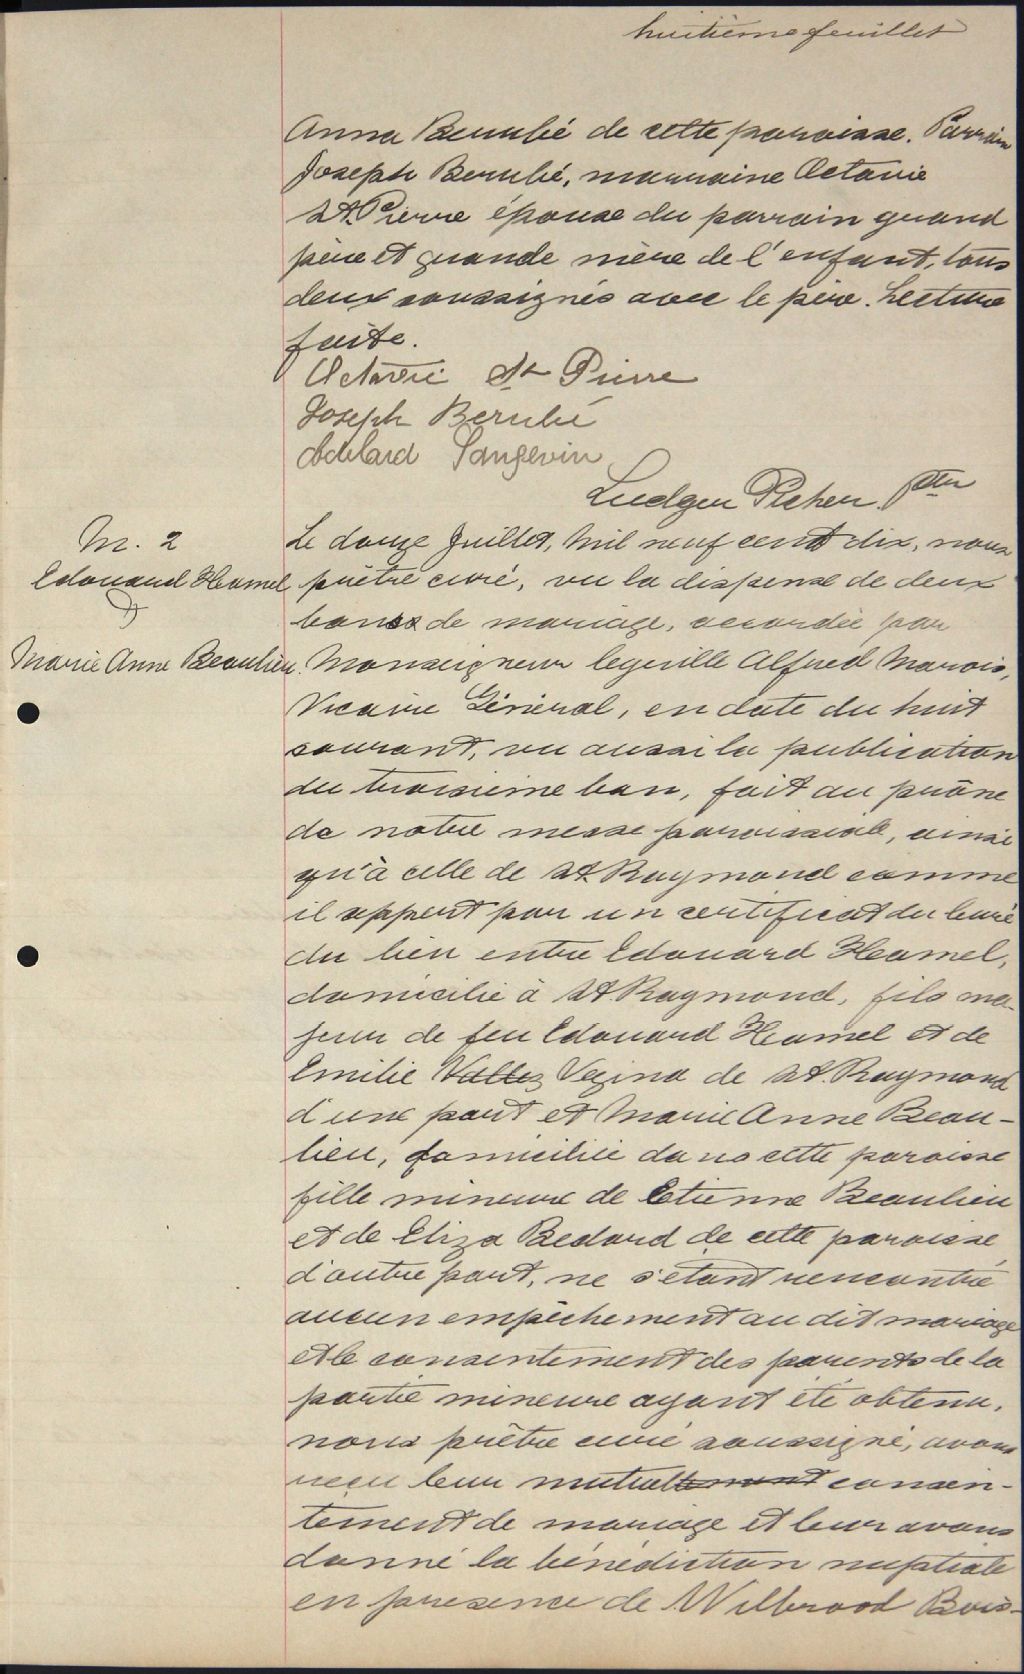 huitième feuillet
Anna Berrubé de cette paroisse. Parrain
Joseph Berubé, marraine Octavie
St. Pierre épouse du parrain grand
père et grande mère de l'enfant, tous
deux soussignés avec le père. Lecture
faite.
Octavie St Pierre
Joseph Berubé
Adelard Langevin
Ludger Picher. Ptre
M. 2
Edouard Hamel
&
Marie Anne Beaulieu.
Le douze Juillet, mil neuf cent dix, nous
prêtre curé, vu la dispense de deux
bans de mariage, accordée par
Monseigneur Alfred Marois,
Vicaire Général, en date du huit
courant, vu aussi la publication
du troisième ban, fait au prône
de notre messe paroissiale, ainsi
qu'à celle de St Raymond comme
il appert par un certificat du Curé
du lieu entre Edouard Hamel,
domicilié à St Raymond, fils ma-
jeur de feu Edouard Hamel et de
Emilie Vezina de St. Raymond
d'une part et Marie Anne Beau-
lieu, domiciliée dans cette paroisse
fille mineure de Etienne Beaulieu
et de Eliza Bedard de cette paroisse,
d'autre part, ne s'etant rencontré
aucun empêchement au dit mariage
et le consentement des parents de la
partie mineure ayant été obtenu,
nous prêtre curé soussigné, avons
reçu leur mutuel consen-
tement de mariage et leur avons
donné la bénédiction nuptiale
en presence de Wilbrood Bois-